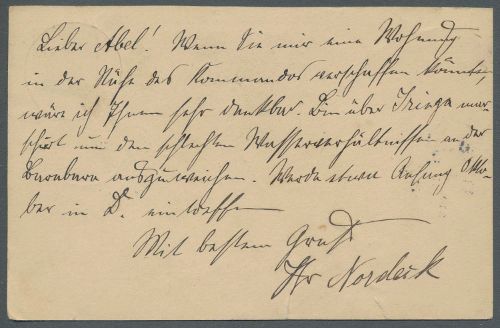 Lieber Abel! Wenn Sie mir eine Wohnung
in der Nähe des Kommandos verschaffen könnten,
wäre ich Ihnen sehr dankbar. Bin über Iringa mar-
schirt um den schlechten Wasserverhältnissen an der
Barabara auszuweichen. Werde etwa Anfang Okto-
ber in D. eintreffen
Mit bestem Gruß
Ihr Nordeck